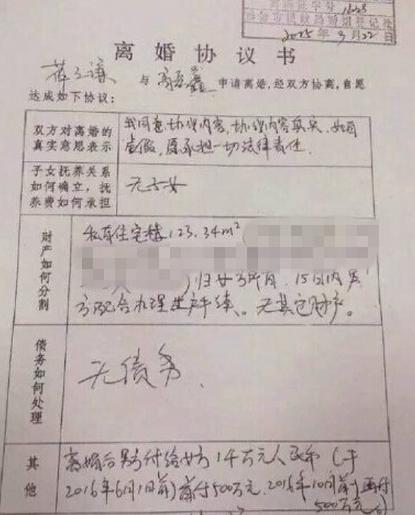 离婚协议书
薛之谦 与 高磊鑫 申请离婚,经双方协商,自愿
达成如下协议:
双方对离婚的
真实意思表示
我同意协议内容,协议内容真实,如有
虚假,愿承担一切法律责任.
子女抚养关系
如何确立,抚
养费如何承担
无子女
财产如何分割
私有住宅楼123.34m²
归女方所有.15日内男
方配合办理过户手续。无其它财产。
债务如何处理
无债务.
其他
离婚后男方付给女方1千万元人民币(于
2016年6月1日前)首付500万元.2016年10月前再付
500万元